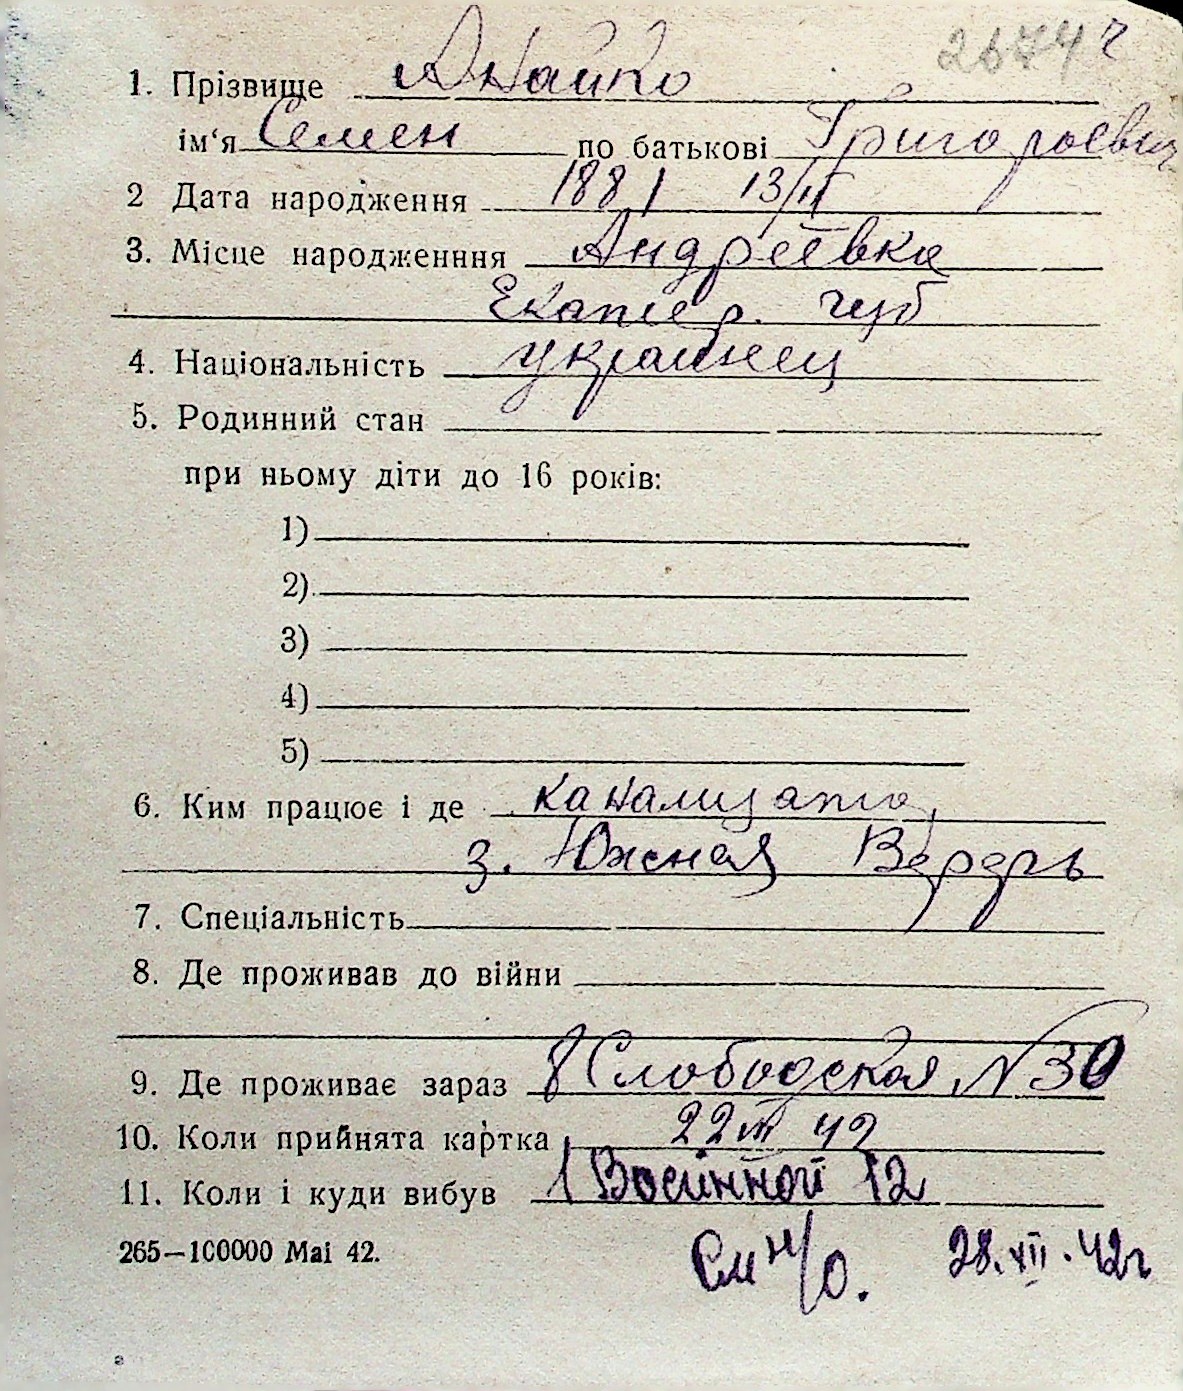 26744
1. Прізвище Анайко
ім‘я Семен по батькові Григорьевич
2 Дата народження 1881 13/II
3. Місце народженння Андреевка
Екатер. губ
4. Національність украинец
5. Родинний стан
при ньому діти до 16 років:
1)
2)
3)
4)
5)
6. Ким працює і де
З. Южная
7. Спеціальність
8. Де проживав до війни
9. Де проживає зараз Слободская N 30
10. Коли прийнята картка 22 III 42
11. Коли і куди вибув 12
265—100000 Mai 42.
См н/о. 28.XII.42г